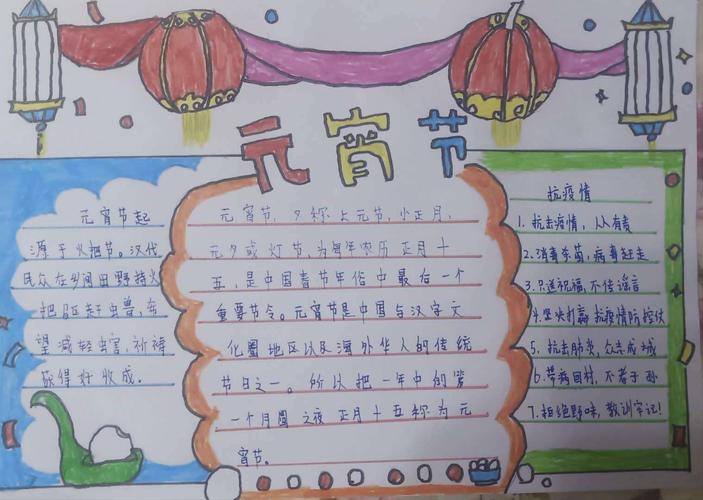 元宵节
元宵节起
源于火把节。汉代
民众在乡间田野持火
把驱赶虫兽,希
望减轻虫害,祈祷
获得好收成。
元宵节,又称上元节,小正月,
元夕或灯节,为每年农历正月十
五,是中国春节年俗中最后一个
重要节令。元宵节是中国与汉字文
化圈地区以及海外华人的传统
节日之一。所以把一年中的第
一个月圆之夜正月十五称为元
宵节。
抗疫情
1.抗击疫情,人人有责
2.消毒杀菌,病毒赶走
3.只送祝福,不传谣言
4.坚决打赢抗疫情防控仗
5.抗击肺炎,众志成城
6.带病回村,不孝子孙
7.拒绝野味,教训牢记!